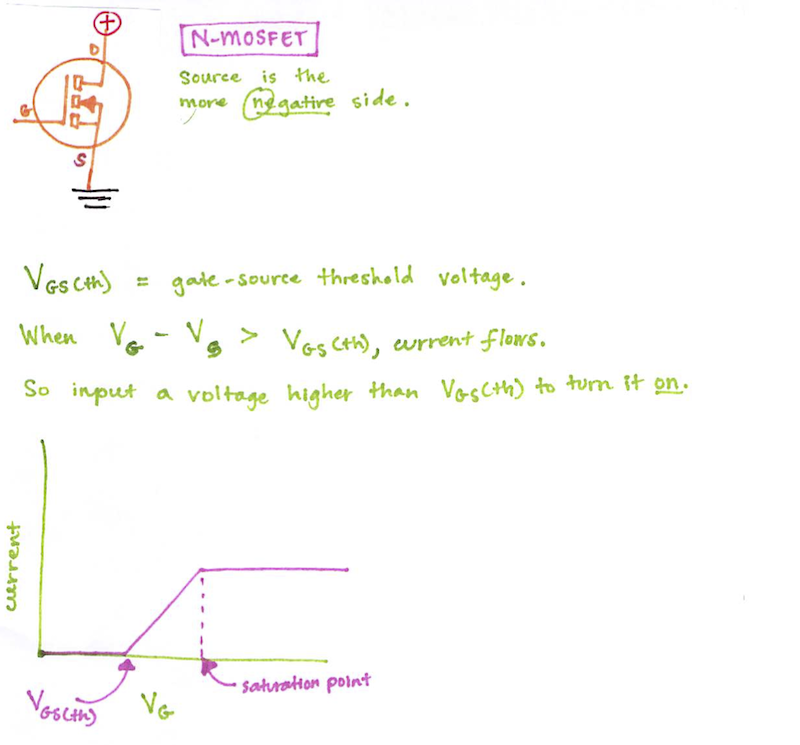 +
D
N-MOSFET
Source is the
more negative side.
G
S
VGS(th) = gate-source threshold voltage.
When VG - VS > VGS(th), current flows.
So input a voltage higher than VGS(th) to turn it on.
current
saturation point
VGS(th)
VG